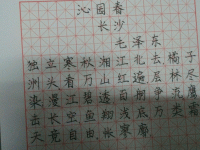 沁园春
长沙
毛泽东
独立寒秋湘江北去橘子
洲头看万山红遍层林尽
染漫江碧透百舸争流鹰
击长空鱼翔浅底万类霜
天竞自由怅寥廓